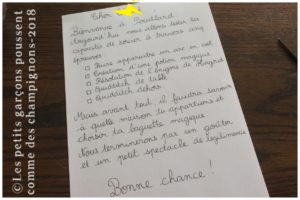 ©Les petits garçons poussent
comme des champignons-2018
Cher !
Bienvenue à Poudlard
Aujourd'hui nous allons tester tes
capacités de sorcier à travers cinq
épreuves
□ Faire apparaître un arc en ciel
□ Création d'une potion magique
□ Résolution de l'énigme de Hagrid
□ Quidditch de table
□ Quidditch dehors
Mais avant tout il faudra savoir
à quelle maison tu appartiens et
choisir ta baguette magique
Nous terminerons par un goûter
et un petit spectacle de legilimencie
Bonne chance !